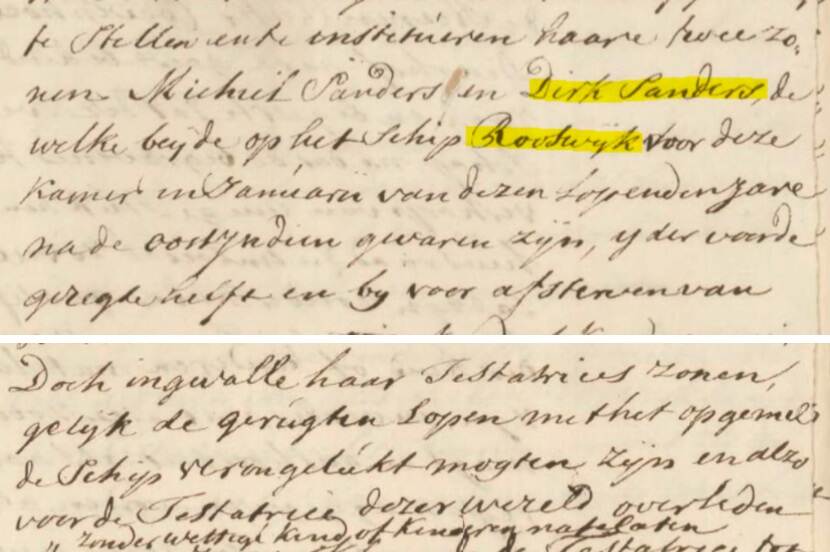 te Stellen ente institueren haare twee zo¬
nen Michiel Sanders en Dirk Sanders, de
welke beijde op het Schip Rooswijk voor deze
Kamer in Januarij van dezen Lopenden Jare
na de oostIndien gevaren zijn, ijder voor de
gezegde helft en bij voor afsterven van
Doch ingevalle haar Testatrices zonen,
gelijk de gerugten Lopen met het opgemel¬
de Schip verongelukt mogten zijn en alzo
voor de Testatrice dezer wereld overleden
zonder wettige Kind of Kinderen natelaten
de Testatrice